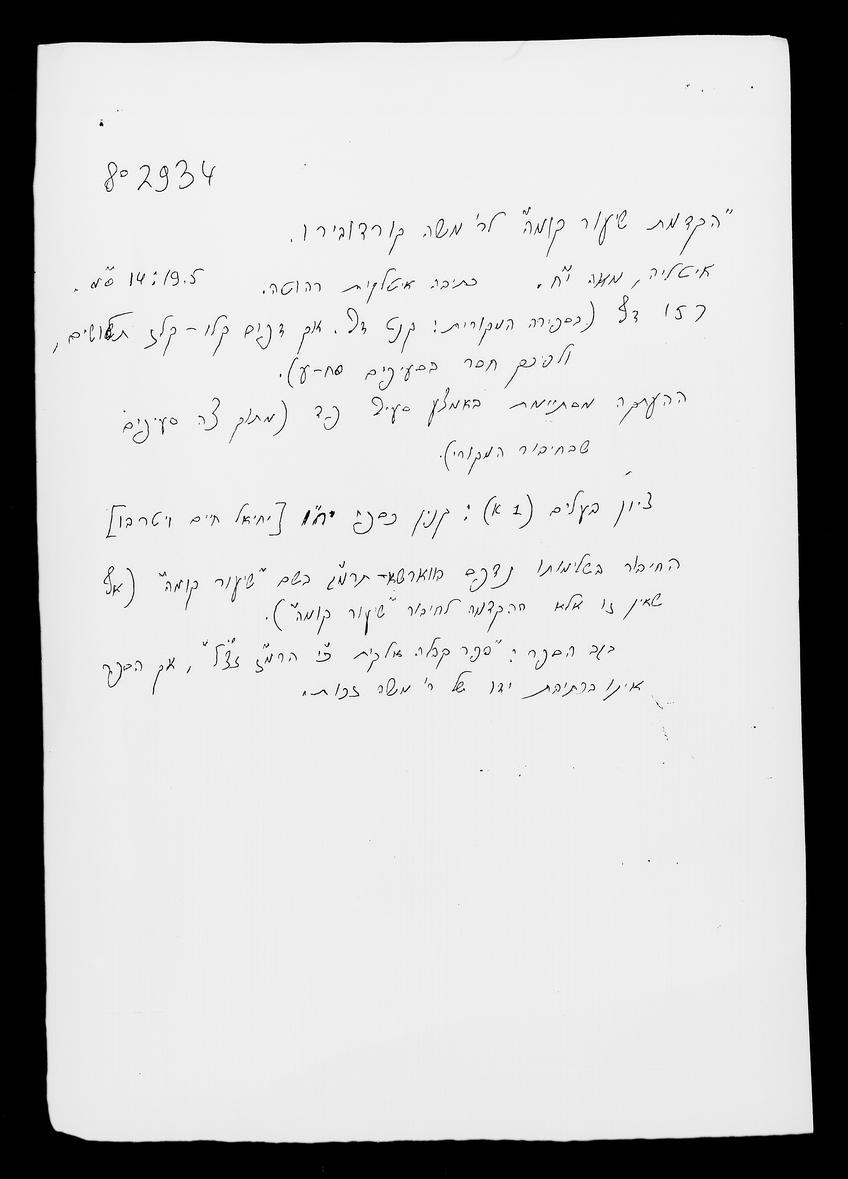 8° 2934
"הקדמת שיעור קומה" לר' משה קורדובירו.
איטליה, מאה י"ח. כתיבה איטלקית רהוטה. 14:19.5 ס"מ.
157 דף (בספירה המקורית: קנט דף. אך דפים קלו-קלז תלושים,
ולפיכך חסר בסעיפים סח-ע).
ההעתקה מסתיימת באמצע סעיף פד (מתוך צה סעיפים
שבחיבור המקורי).
ציון בעלים (1א): קנין כספי יח"ו [יחיאל חיים ויטרבו]
החיבור בשלימותו נדפס בווארשא-תרמ"ג בשם "שיעור קומה" (אף
שאין זו אלא ההקדמה לחיבור "שיעור קומה").
בגב הספר: "ספר קבלה אלקית כ"י הרמ"ז זצ"ל", אך הספר
אינו בכתיבת ידו של ר' משה זכות.